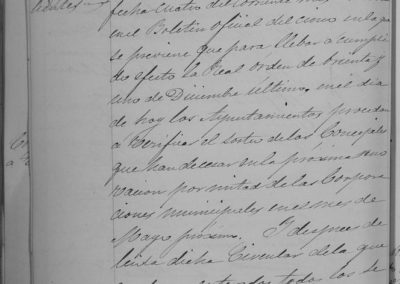 fecha cuatro del corriente
en el Boletin Oficial del cinco en la q.e
se previene que para llebar a cumpli
do efecto la Real orden de treinta y
uno de Diciembre ultimo, en el dia
de hoy los Ayuntamientos procedan
a verificar el sorteo de los Concejales
que han de cesar en la próxima reno
vacion por mitad de las Corpora
ciones municipales en el mes de
Mayo próximo. Y despues de
leida dicha Circular de la que
todos los Se